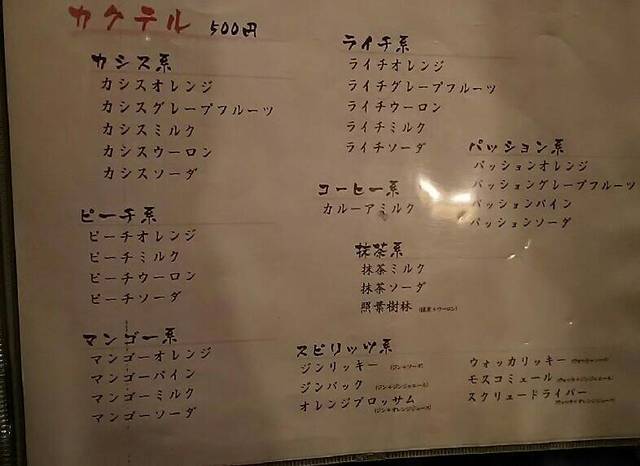 カクテル 500円
カシス系
カシスオレンジ
カシスグレープフルーツ
カシスミルク
カシスウーロン
カシスソーダ
ピーチ系
ピーチオレンジ
ピーチミルク
ピーチウーロン
ピーチソーダ
マンゴー系
マンゴーオレンジ
マンゴーパイン
マンゴーミルク
マンゴーソーダ
ライチ系
ライチオレンジ
ライチグレープフルーツ
ライチウーロン
ライチミルク
ライチソーダ
コーヒー系
カルーアミルク
抹茶系
抹茶ミルク
抹茶ソーダ
照葉樹林 (抹茶+ウーロン)
パッション系
パッションオレンジ
パッショングレープフルーツ
パッションパイン
パッションソーダ
スピリッツ系
ジンリッキー (ジン+ソーダ)
ジンバック (ジン+ジンジャエール)
オレンジブロッサム (ジン+オレンジジュース)
ウォッカリッキー
モスコミュール
スクリュードライバー